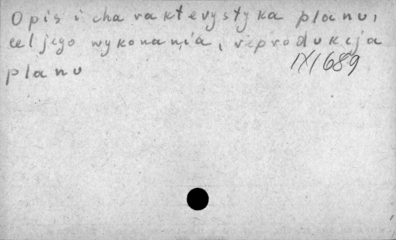 Opis i charakterystyka planu,
cel jego wykonania, reprodukcja
planu
IXI689